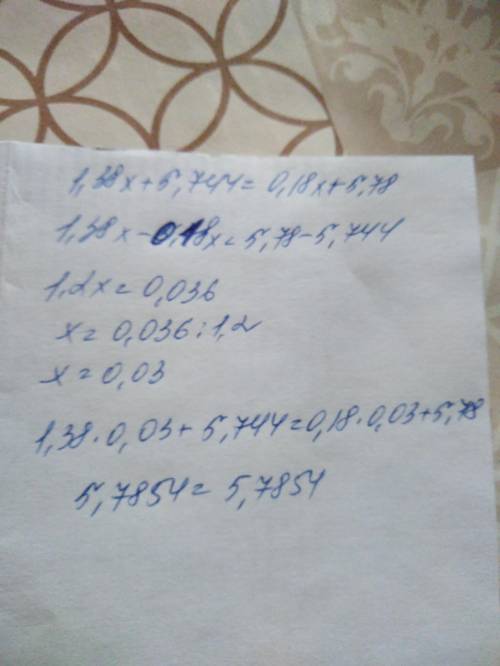 1,38x+5,744=0,18x+5,78
1,38x-0,18x=5,78-5,744
1,2x=0,036
x=0,036:1,2
x=0,03
1,38·0,03+5,744=0,18·0,03+5,78
5,7854=5,7854